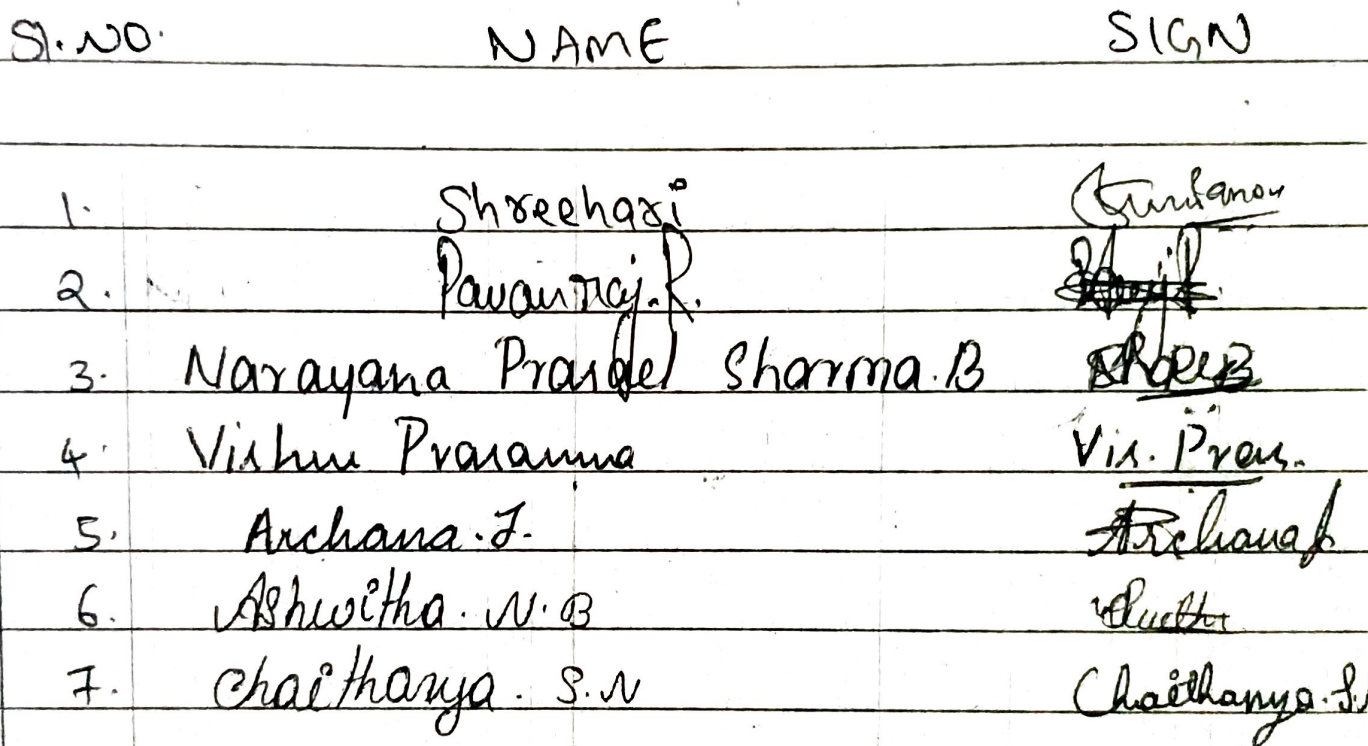 Sl. NO. NAME SIGN
1. Shreehari
2. Pavanraj. R.
3. Narayana Prasad Sharma. B
4. Vishnu Prasanna Vis. Pras.
5. Archana. J. Archana J
6. Ashwitha. N. B
7. Chaithanya. S. N Chaithanya. S. N